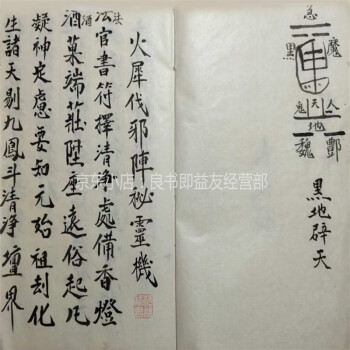 急
魔
黑
鬼 天 人
地
魏
酆
黑地辟天
火犀伐邪陣秘靈機
法官書符擇清淨處備香燈
酒菓端莊陞座遠俗起凡
凝神定慮要知元始祖刦化
生諸天剔九鳳斗清淨壇界
京东小店 良书即益友经营部